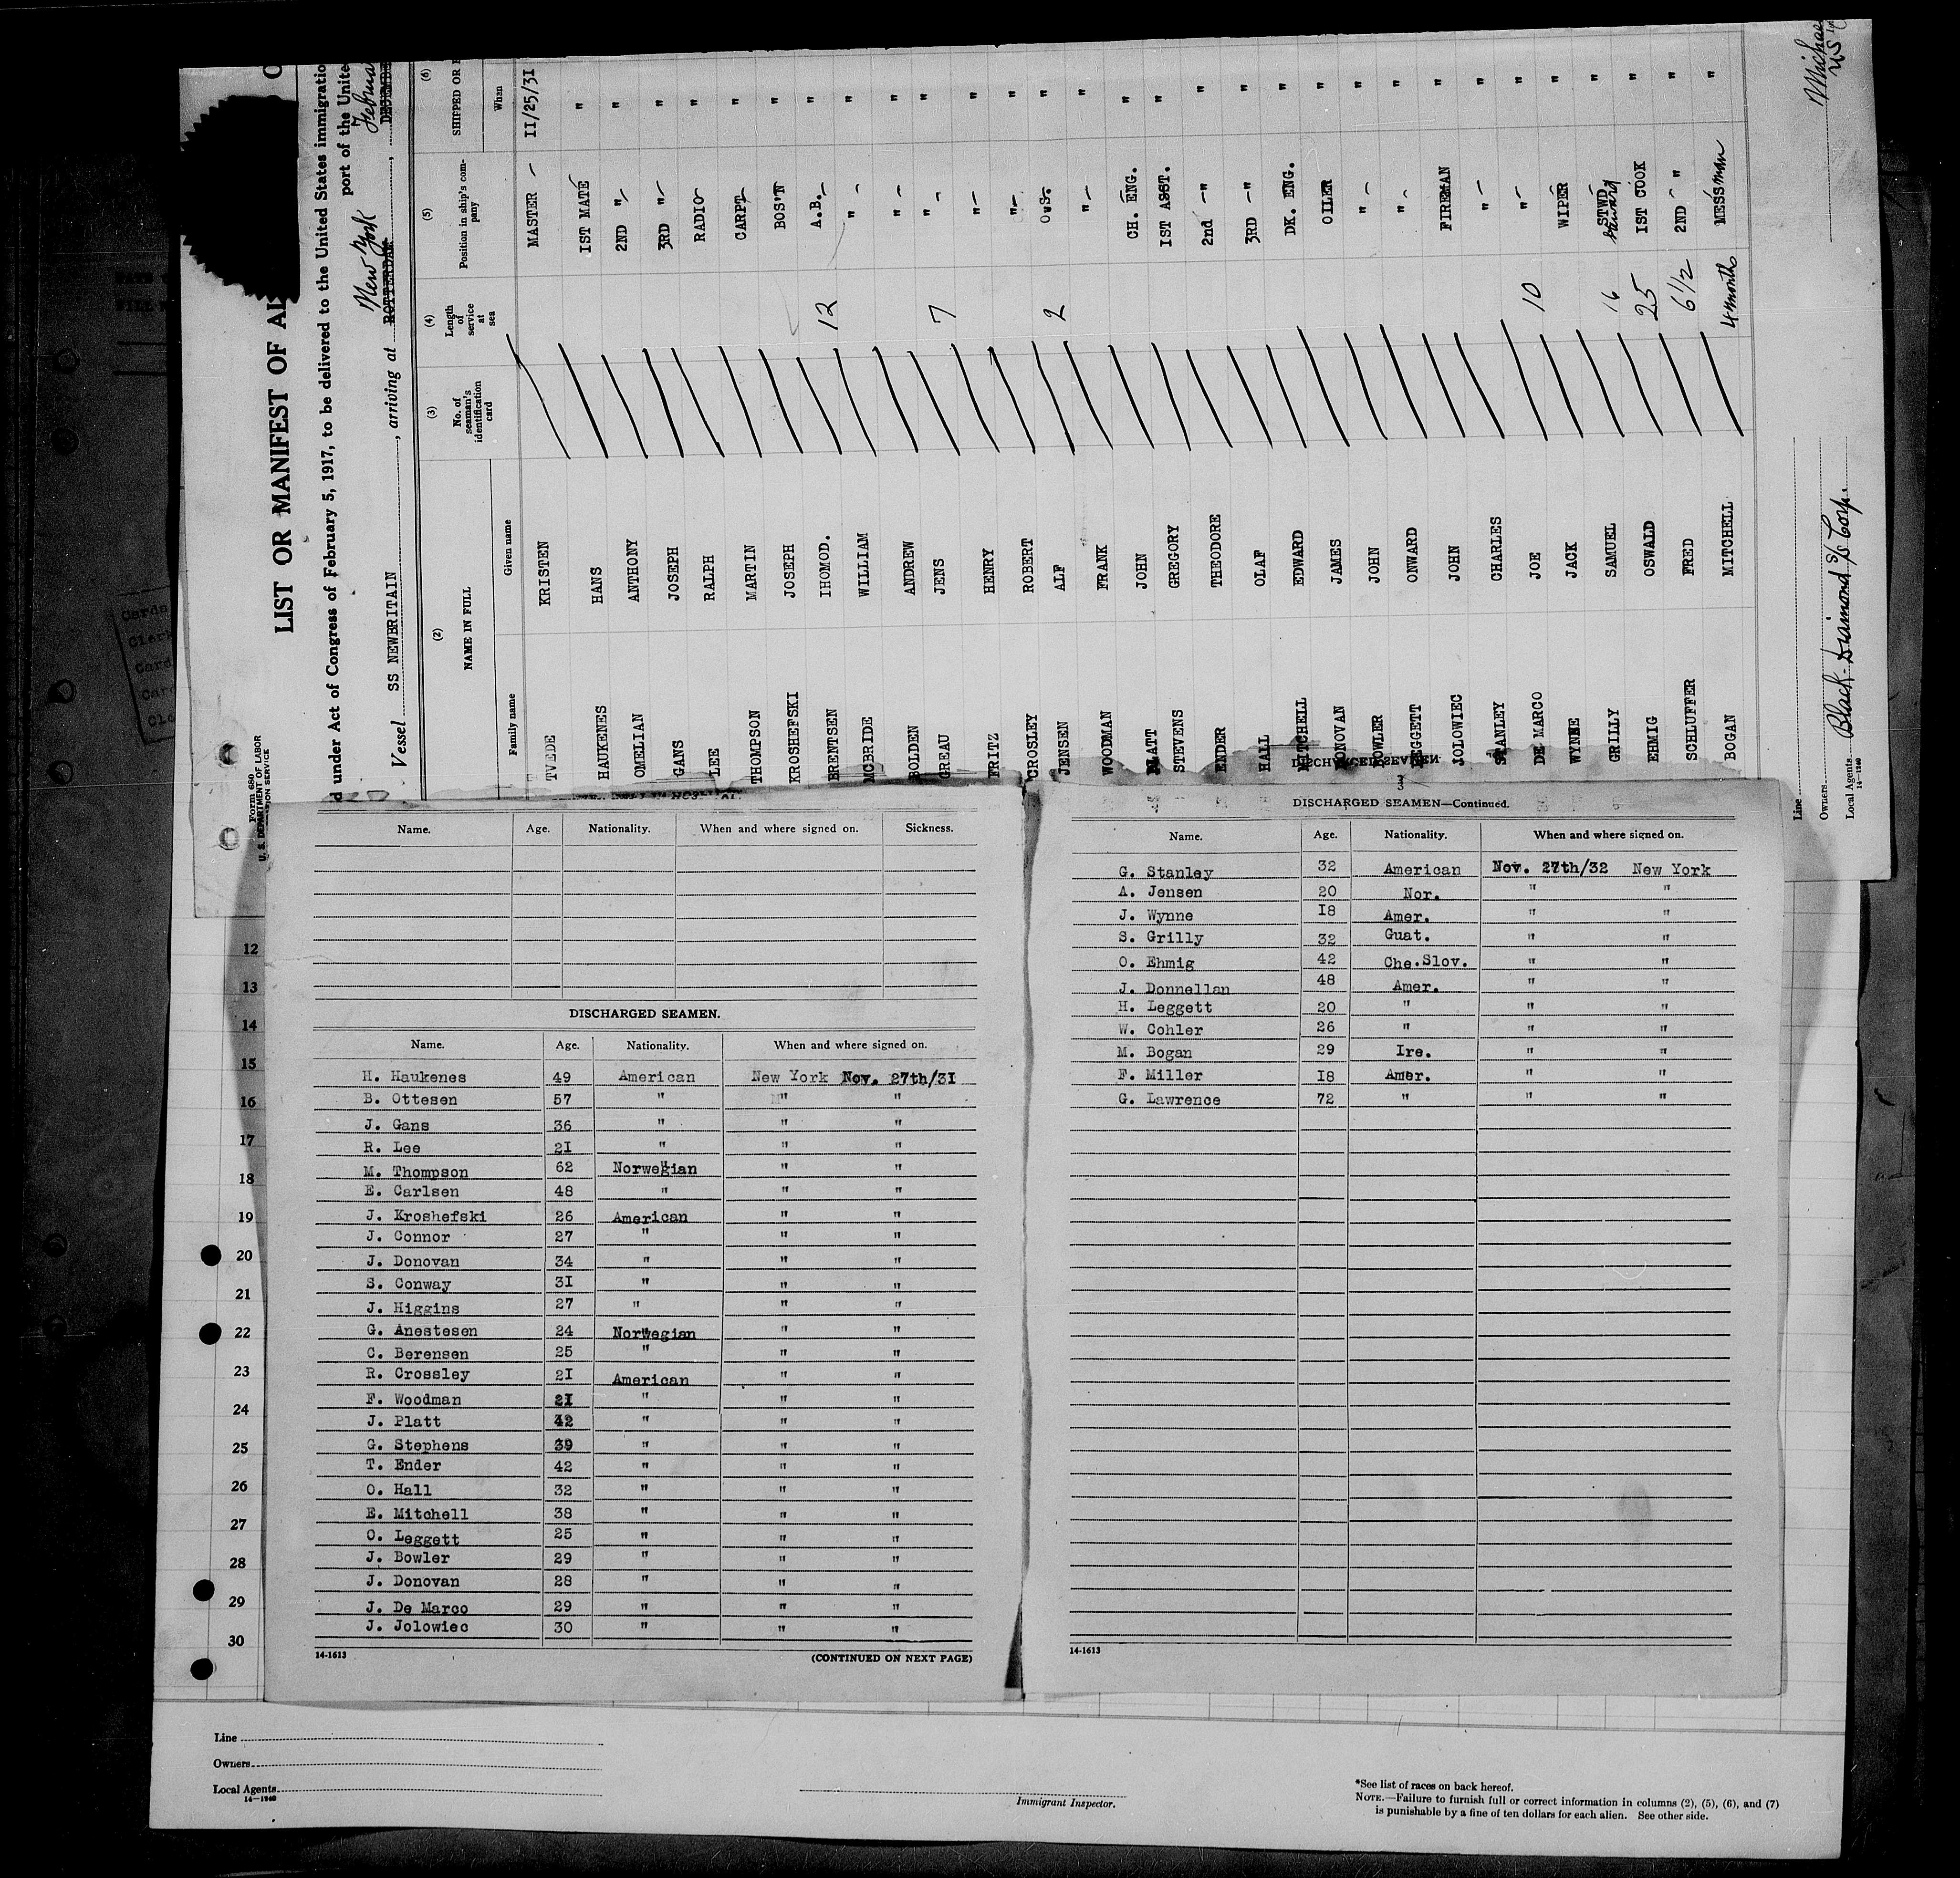 LIST OR MANIFEST OF
under Act of Congress of February 5, 1917, to be delivered to the United States immigratio
port of the Unite
Vessel SS NEWBRITAIN, arriving at ROTTERDAM New York
Form 680
U. S. DEPARTMENT OF LABOR
(2) (3) (4) (5) (6)
NAME IN FULL No. of seaman's identification card Length of service at sea Position in ship's company SHIPPED OR
Family name Given name When
TVEDE KRISTEN MASTER – 11/25/31
HAUKENES HANS 1ST MATE "
OMELIAN ANTHONY 2ND " "
GANS JOSEPH 3RD " "
LEE RALPH RADIO "
THOMPSON MARTIN CARPT "
KROSHEFSKI JOSEPH BOS'N "
BRENTSEN IHOMOD. 12 A.B. "
MCBRIDE WILLIAM " "
BOLDEN ANDREW " "
GREAU JENS 7 " "
FRITZ HENRY " "
CROSLEY ROBERT " "
JENSEN ALF 2 O.S. "
WOODMAN FRANK " "
PLATT JOHN CH. ENG. "
STEVENS GREGORY 1ST ASST. "
ENDER THEODORE 2nd " "
HALL OLAF 3RD " "
MITCHELL EDWARD DK. ENG. "
DONOVAN JAMES OILER "
BOWLER JOHN " "
LEGGETT ONWARD " "
JOLOWIEC JOHN FIREMAN "
STANLEY CHARLES " "
DE MARCO JOE 10 " "
WYNNE JACK WIPER "
GRILLY SAMUEL 16 STWD steward "
EHMIG OSWALD 25 1ST COOK "
SCHLUFFER FRED 6 1/2 2ND " "
BOGAN MITCHELL 4 months MESSman "
Line
Owners
Local Agents Black Diamond S/S Corp.
14—1240
Name. Age. Nationality. When and where signed on. Sickness.
DISCHARGED SEAMEN.
Name. Age. Nationality. When and where signed on.
H. Haukenes 49 American New York Nov. 27th/31
B. Ottesen 57 " " "
J. Gans 36 " " "
R. Lee 21 " " "
M. Thompson 62 Norwegian " "
E. Carlsen 48 " " "
J. Kroshefski 26 American " "
J. Connor 27 " " "
J. Donovan 34 " " "
S. Conway 31 " " "
J. Higgins 27 " " "
G. Anestesen 24 Norwegian " "
C. Berensen 25 " " "
R. Crossley 21 American " "
F. Woodman 21 " " "
J. Platt 42 " " "
G. Stephens 39 " " "
T. Ender 42 " " "
O. Hall 32 " " "
E. Mitchell 38 " " "
O. Leggett 25 " " "
J. Bowler 29 " " "
J. Donovan 28 " " "
J. De Marco 29 " " "
J. Jolowiec 30 " " "
14-1613 (CONTINUED ON NEXT PAGE)
3
DISCHARGED SEAMEN—Continued.
Name. Age. Nationality. When and where signed on.
G. Stanley 32 American Nov. 27th/32 New York
A. Jensen 20 Nor. " "
J. Wynne 18 Amer. " "
S. Grilly 32 Guat. " "
O. Ehmig 42 Che.Slov. " "
J. Donnellan 48 Amer. " "
H. Leggett 20 " " "
W. Cohler 26 " " "
M. Bogan 29 Ire. " "
F. Miller 18 Amer. " "
G. Lawrence 72 " " "
14-1613
12
13
14
15
16
17
18
19
20
21
22
23
24
25
26
27
28
29
30
Line
Owners
Local Agents
14—1240
Immigrant Inspector.
*See list of races on back hereof.
NOTE.—Failure to furnish full or correct information in columns (2), (5), (6), and (7)
is punishable by a fine of ten dollars for each alien. See other side.